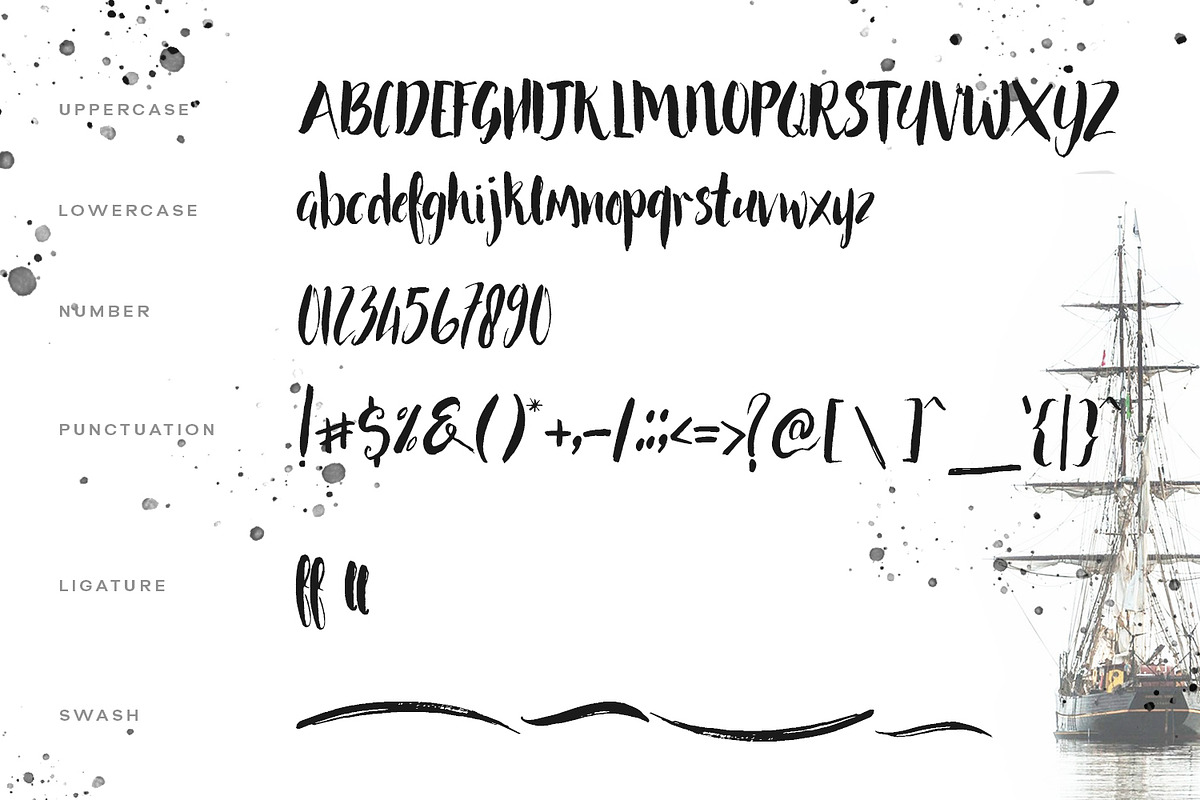 UPPERCASE ABCDEFGHIJKLMNOPQRSTUVWXYZ
LOWERCASE abcdefghijklmnopqrstuvwxyz
NUMBER 01234567890
PUNCTUATION !#$%&()*+,-/.:;<=>?@[\]^_`{|}~
LIGATURE ff ll
SWASH